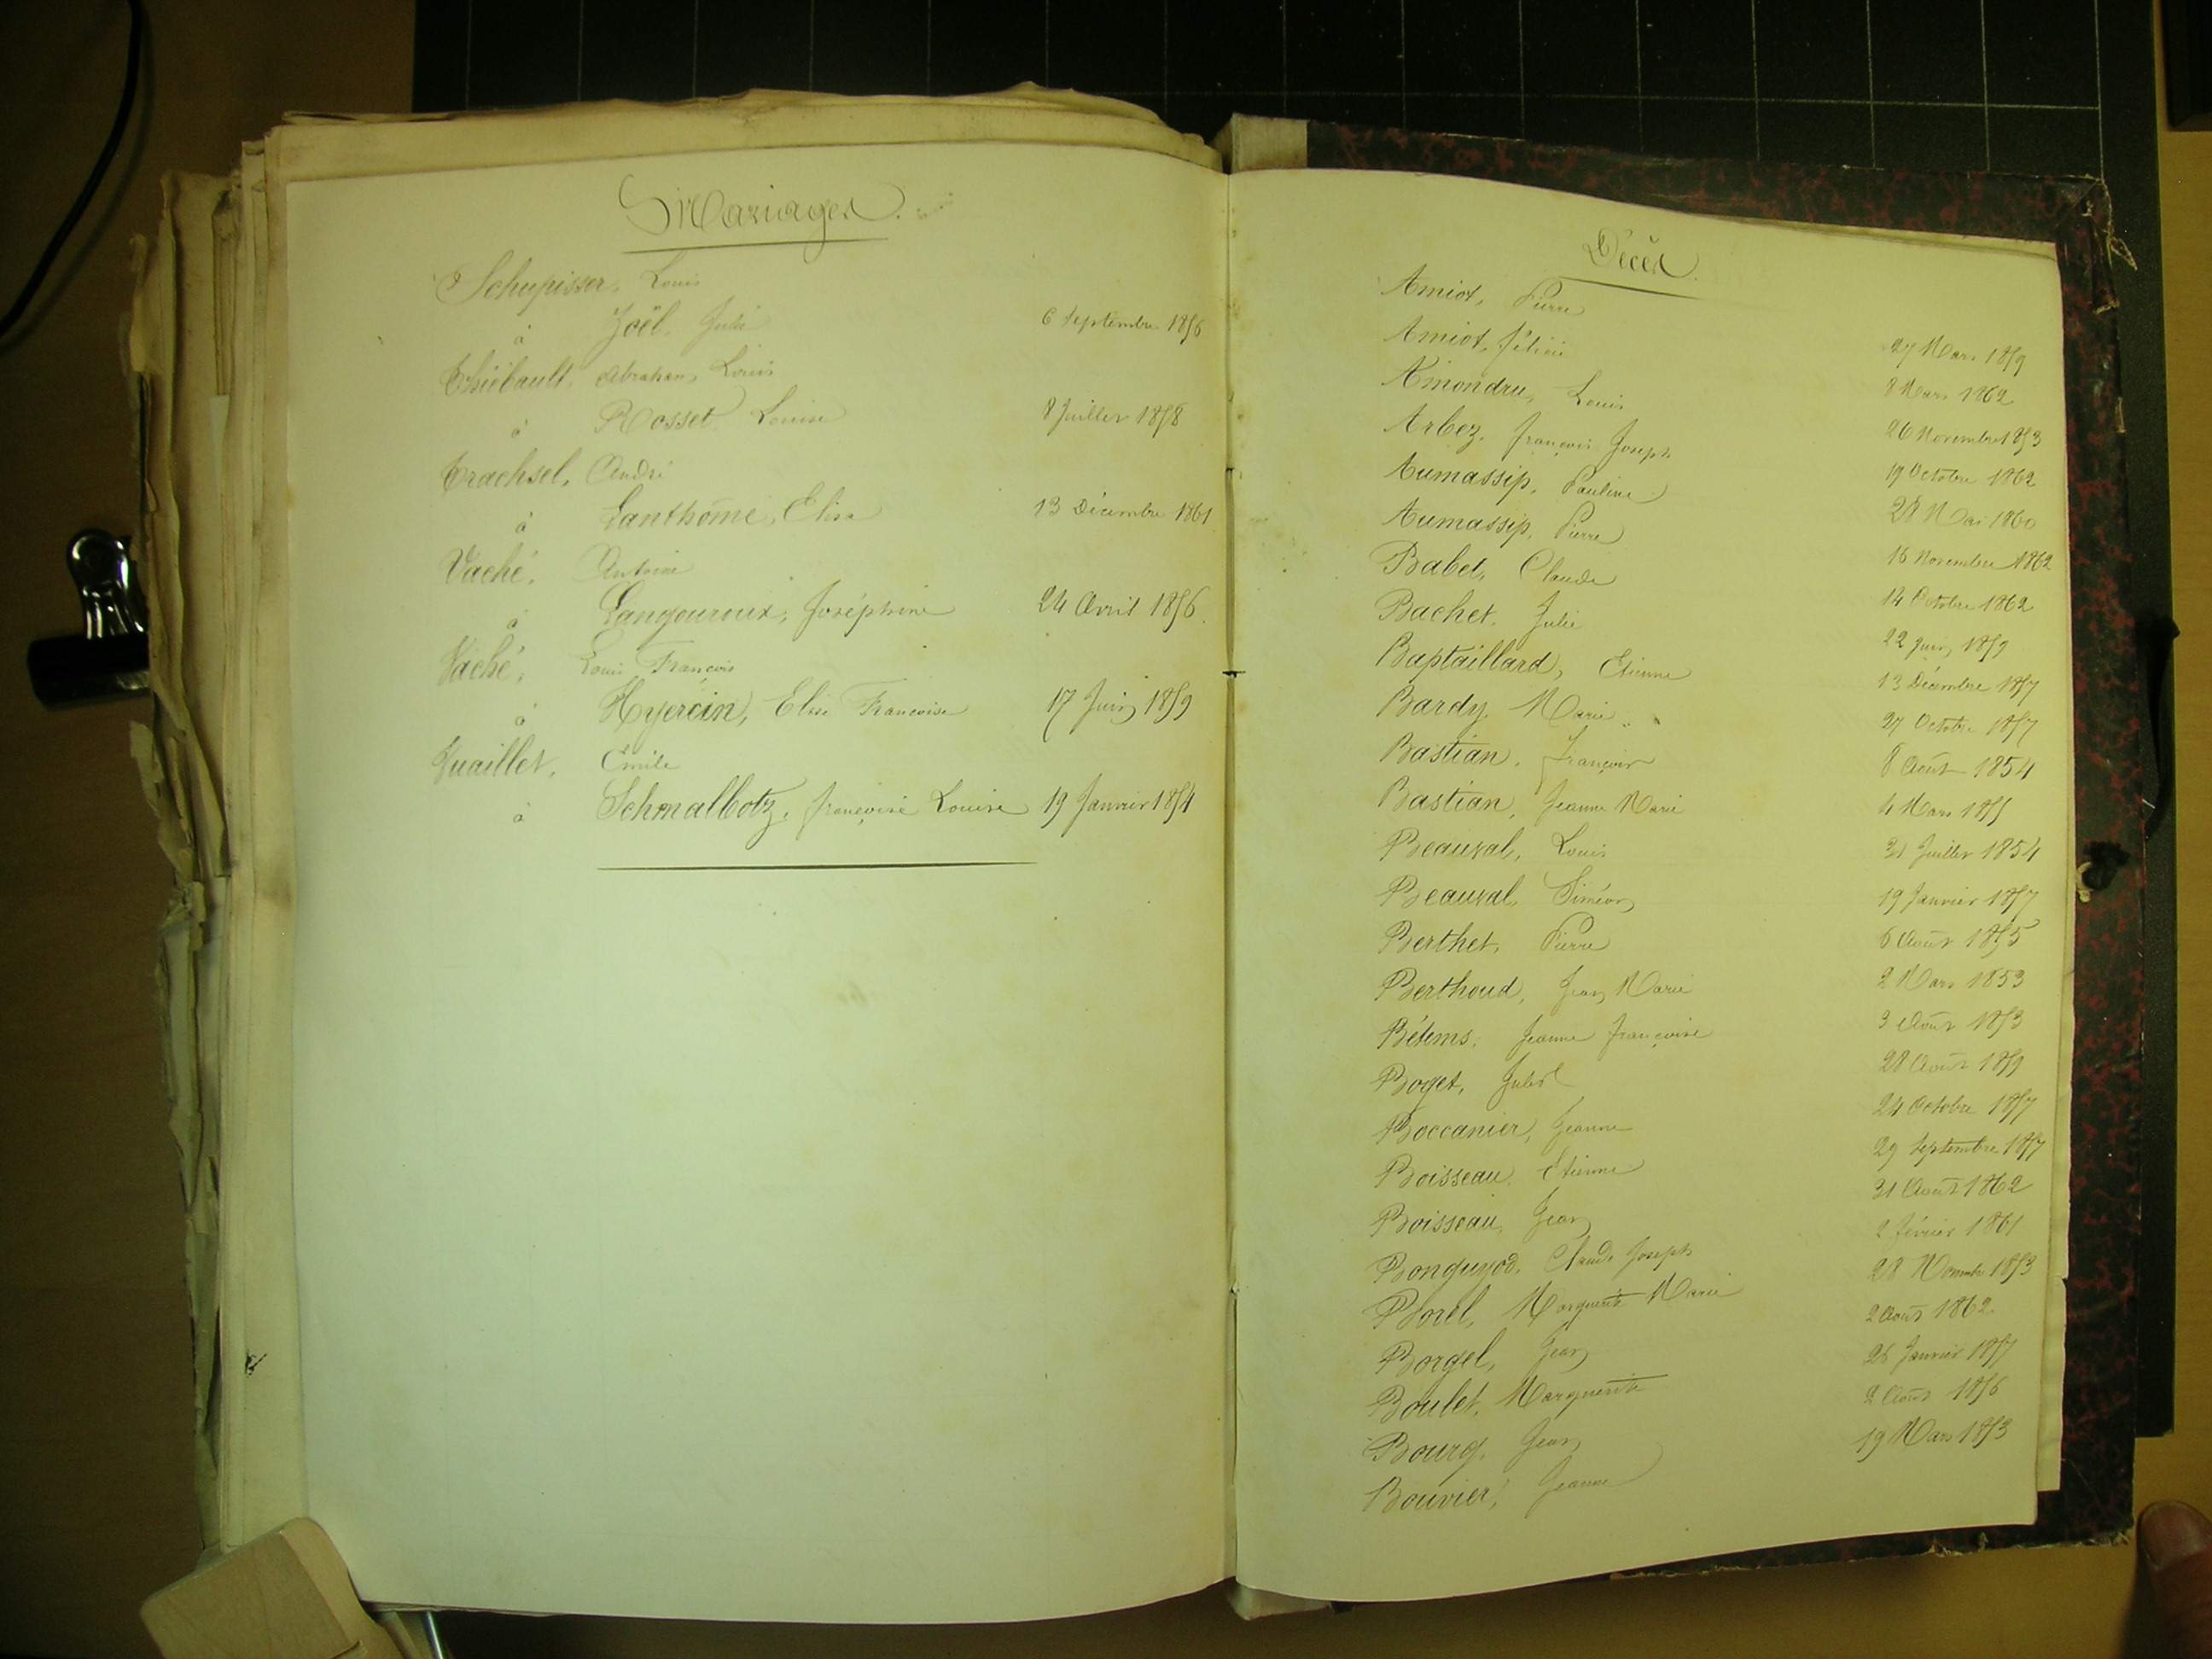 Mariages.
Schupisser, Louis
à Joël, Julie 6 Septembre 1856
Thiébault, Abraham Louis
à Rosset, Louise 8 Juillet 1858
Trachsel, André
à Lanthôme, Elisa 13 Décembre 1861
Vaché, Antoine
à Langouroux, Joséphine 24 Avril 1856.
Vaché, Louis François
à Hyercin, Elise Françoise 17 Juin 1859
Vuaillet, Emile
à Schmalbotz, françoise Louise 19 Janvier 1854
Décès.
Amiot, Pierre 27 Mars 1859
Amiot, félicie 8 Mars 1862
Amondru, Louis 26 Novembre 1853
Arbez, françois Joseph 19 Octobre 1862
Aumassip, Pauline 28 Mai 1860
Aumassip, Pierre 16 Novembre 1862
Babel, Claude 14 Octobre 1862
Bachet, Julie 22 Juin 1859
Baptaillard, Etienne 13 Décembre 1857
Bardy, Marie 27 Octobre 1857
Bastian, François 8 Août 1854
Bastian, Jeanne Marie 4 Mars 1855
Beauval, Louis 31 Juillet 1854
Beauval, Siméon 19 Janvier 1857
Berthet, Pierre 6 Août 1855
Berthoud, Jean Marie 2 Mars 1853
Bétems, Jeanne françoise 3 Août 1853
Boget, Jules 28 Août 1859
Boccanier, Jeanne 24 Octobre 1857
Boisseau, Etienne 29 Septembre 1857
Boisseau, Jean 31 Août 1862
Bonguyod, Claude Joseph 2 février 1861
Borel, Marguerite Marie 28 Novembre 1853
Borgel, Jean 2 Août 1862
Boulet, Marguerite 26 Janvier 1857
Bourg, Jean 2 Août 1856
Bouvier, Jeanne 19 Mars 1853